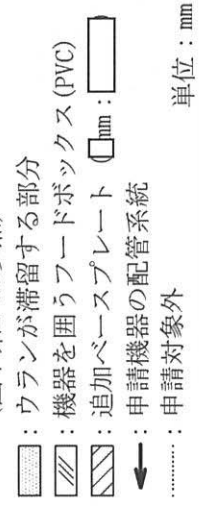 ：ウランが滞留する部分
：機器を囲うフードボックス(PVC)
：追加ベースプレート
mm：
：申請機器の配管系統
：申請対象外
単位：mm